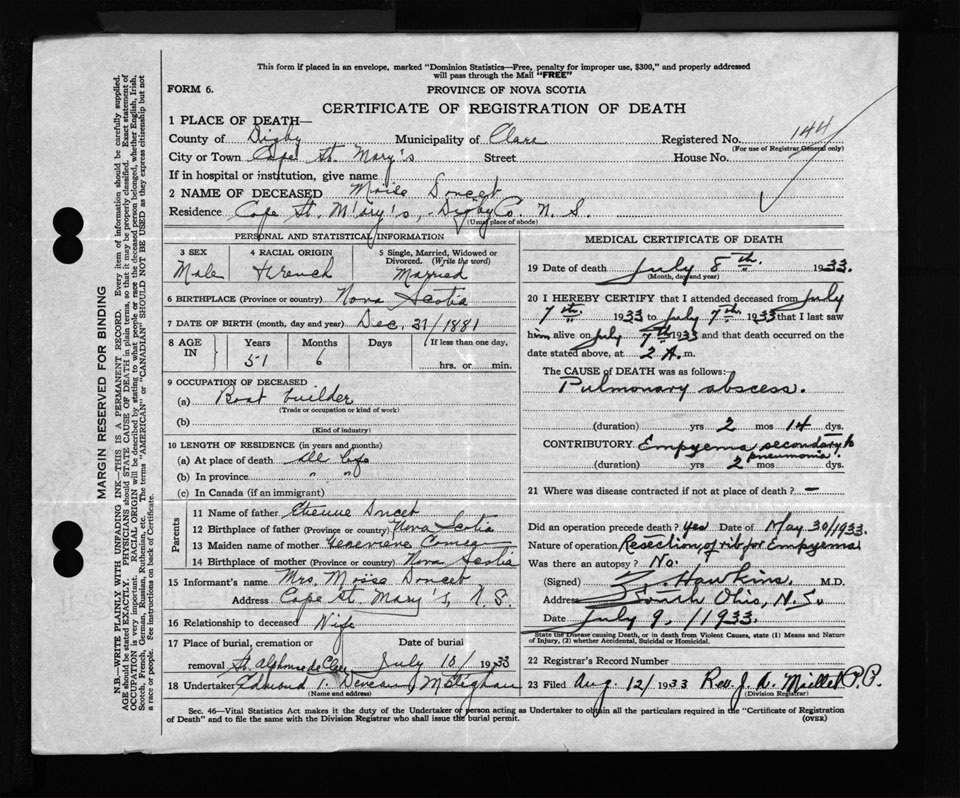 This form if placed in an envelope, marked "Dominion Statistics—Free, penalty for improper use, $300," and properly addressed
will pass through the Mail "FREE"
FORM 6.
PROVINCE OF NOVA SCOTIA
CERTIFICATE OF REGISTRATION OF DEATH
1 PLACE OF DEATH—
County of Digby Municipality of Clare Registered No. 144
(For use of Registrar General only)
City or Town Cape St. Mary's Street House No.
If in hospital or institution, give name
2 NAME OF DECEASED Doucet
Residence Cape St. Mary's, Digby Co. N. S.
(Usual place of abode)
PERSONAL AND STATISTICAL INFORMATION
3 SEX 4 RACIAL ORIGIN 5 Single, Married, Widowed or
Divorced. (Write the word)
Male French Married
6 BIRTHPLACE (Province or country) Nova Scotia
7 DATE OF BIRTH (month, day and year) Dec. 31/1881
8 AGE IN Years Months Days If less than one day,
51 6 hrs. or min.
9 OCCUPATION OF DECEASED
(a) Boat builder
(Trade or occupation or kind of work)
(b)
(Kind of industry)
10 LENGTH OF RESIDENCE (in years and months)
(a) At place of death All life
(b) In province " "
(c) In Canada (if an immigrant)
Parents
11 Name of father Etienne Doucet
12 Birthplace of father (Province or country) Nova Scotia
13 Maiden name of mother Genevieve Comeau
14 Birthplace of mother (Province or country) Nova Scotia
15 Informant's name Mrs. Moise Doucet
Address Cape St. Mary's, N. S.
16 Relationship to deceased Wife
17 Place of burial, cremation or Date of burial
removal St. Alphonse de Clare July 10/1933
18 Undertaker Edmond Deveau
(Name and address)
MEDICAL CERTIFICATE OF DEATH
19 Date of death July 8th 1933.
(Month, day and year)
20 I HEREBY CERTIFY that I attended deceased from July
7th 1933 to July 7th 1933 that I last saw
him alive on July 7th 1933 and that death occurred on the
date stated above, at 2 A. m.
The CAUSE OF DEATH was as follows:
Pulmonary abscess.
(duration) yrs 2 mos 14 dys.
CONTRIBUTORY Empyema secondary to
pneumonia.
(duration) yrs 2 mos dys.
21 Where was disease contracted if not at place of death? —
Did an operation precede death? yes Date of May 30/1933.
Nature of operation Resection of rib for Empyema
Was there an autopsy? No.
(Signed) Hawkins, M.D.
Address South Ohio, N.S.
Date July 9, /1933.
State the Disease causing Death, or in death from Violent Causes, state (1) Means and Nature
of Injury, (2) whether Accidental, Suicidal or Homicidal.
22 Registrar's Record Number
23 Filed Aug. 12/1933 Rev. J. A. Maillet P.P.
(Division Registrar)
Sec. 46—Vital Statistics Act makes it the duty of the Undertaker or person acting as Undertaker to obtain all the particulars required in the "Certificate of Registration
of Death" and to file the same with the Division Registrar who shall issue the burial permit.
(OVER)
MARGIN RESERVED FOR BINDING
N.B.—WRITE PLAINLY WITH UNFADING INK—THIS IS A PERMANENT RECORD. Every item of information should be carefully supplied.
AGE should be stated EXACTLY. PHYSICIANS should STATE CAUSE OF DEATH in plain terms, so that it may be properly classified. Exact statement of
OCCUPATION is very important. RACIAL ORIGIN will be described by stating to what people or race the deceased person belonged, whether English, Irish,
Scotch, French, German, Russian, Ruthenian, etc. The terms "AMERICAN" or "CANADIAN" SHOULD NOT BE USED as they express citizenship but not
a race or people. See instructions on back of Certificate.